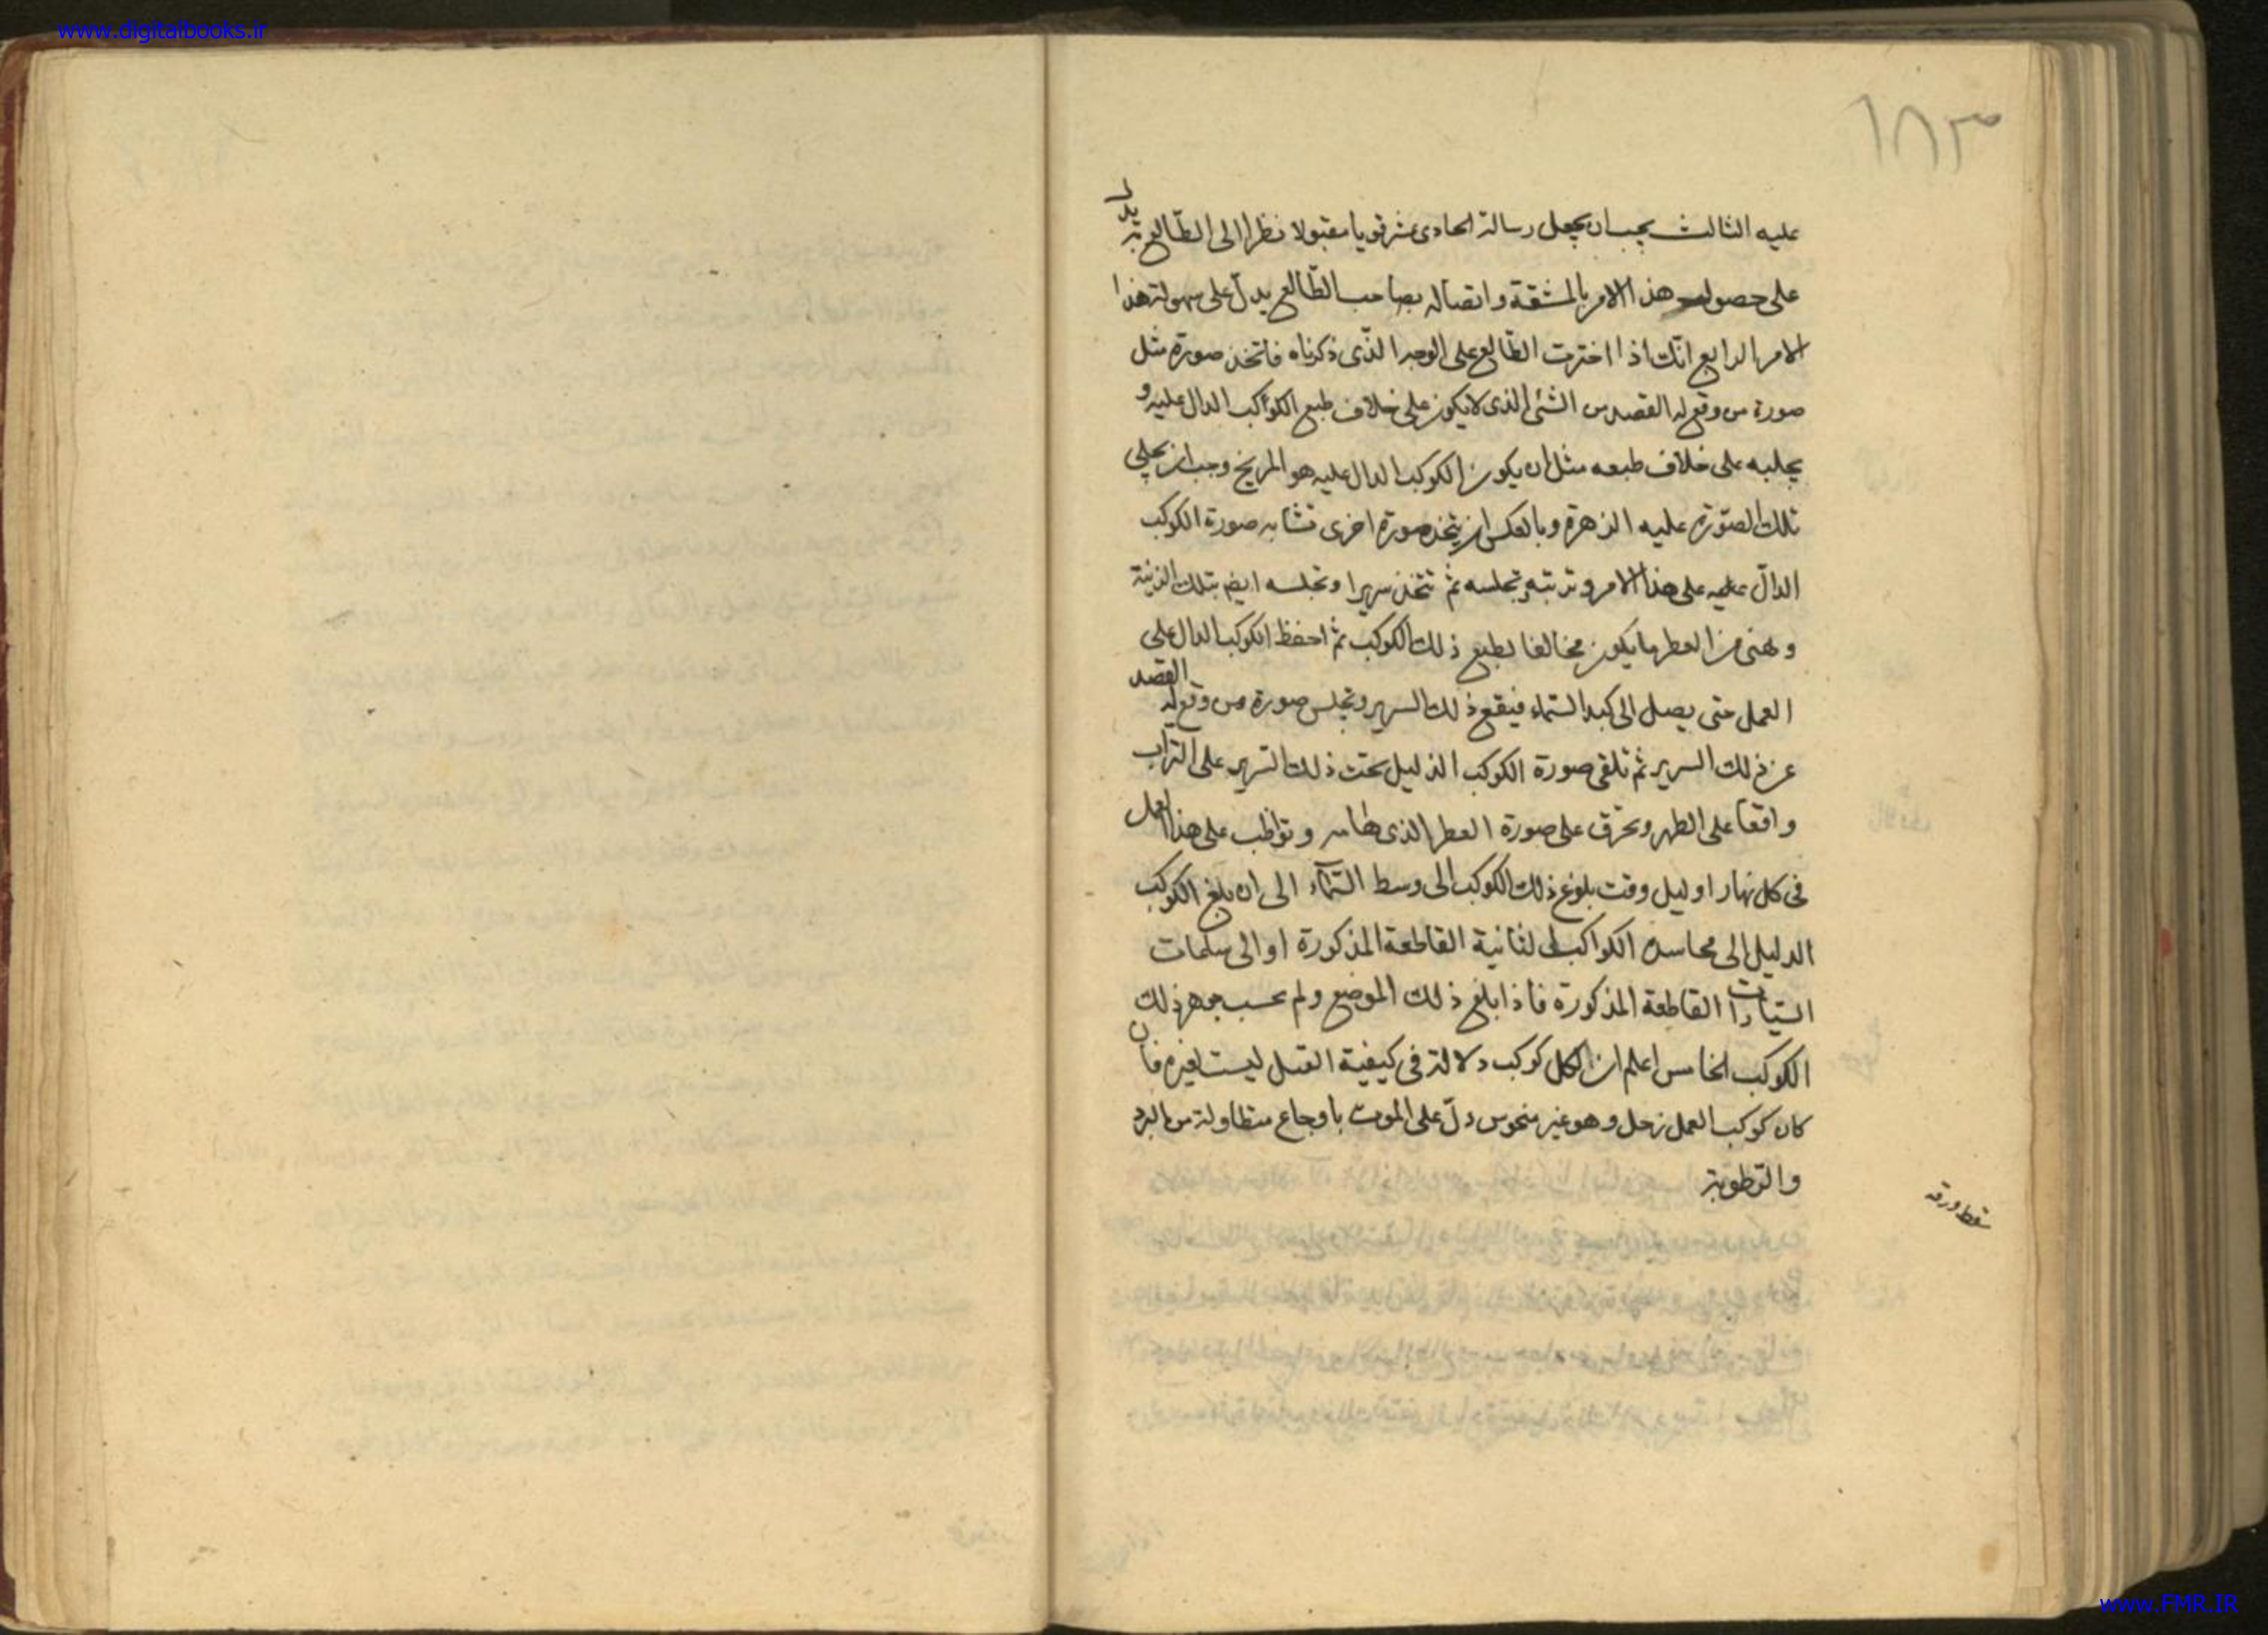 www.digitalbooks.ir
١٨٣
عليه الثالث يجب ان يجعل رسالة الحادى عشر قويا مقبولا نظرا الى الطالع يدل
على حصول هذا الامر بالمشقة واتصاله بصاحب الطّالع يدلّ على سهولة هذا
الامر الرابع انّك اذا اخترت الطّالع على الوجه الذّى ذكرناه فاتخذ صورة مثل
صورة من وقع له القصد من الشئ الذى لا يكون على خلاف طبع الكواكب الدال عليه و
يجلبه على خلاف طبعه مثل ان يكون الكوكب الدال عليه هو المريخ وجب ان يحلى
تلك الصّورة عليه الزهرة وبالعكس ان يتخذ صورة اخرى تشابه صورة الكوكب
الدالّ عليه على هذا الامر و تجلسه ثم تتخذ سريرا وتجلسه ايضا بتلك الزينة
من العطر ما يكون مخالفا بطبع ذلك الكوكب ثم احفظ الكوكب الدال على
العمل حتى يصل الى كبد السّماء فيقع ذلك السرير وتجلس صورة من وقع له القصد
عن ذلك السرير ثم تلقى صورة الكوكب الذليل تحت ذلك السّرير على التراب
واقعا على الظهر وتحرق على صورة العطر الذى وتواظب على هذا العمل
فى كل نهار او ليل وقت بلوغ ذلك الكوكب الى وسط السّمآء الى ان بلغ الكوكب
الدليل الى الكواكب الثانية القاطعة المذكورة او الى
السّيارات القاطعة المذكورة فاذا بلغ ذلك الموضع ولم جوهر ذلك
الكوكب الخامس اعلم ان لكل كوكب دلالة فى كيفية القتل ليست لغيره فان
كان كوكب العمل زحل وهو غير منحوس دلّ على الموت باوجاع متطاولة من البرد
والرّطوبة
سقط ورقه
www.FMR.IR